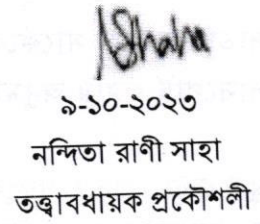 ৯-১০-২০২৩
নন্দিতা রাণী সাহা
তত্ত্বাবধায়ক প্রকৌশলী